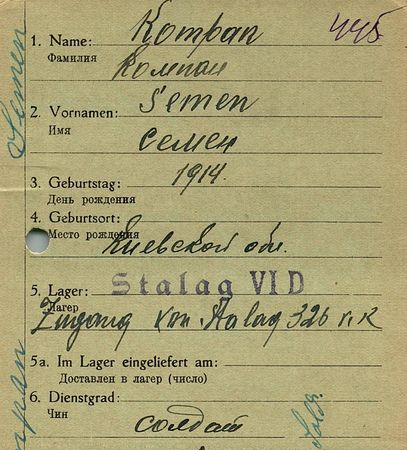 445
1. Name: Kompan
Фамилия Компан
2. Vornamen: Semen
Имя Семен
3. Geburtstag: 1914.
День рождения
4. Geburtsort:
Место рождения Киевской обл.
5. Lager: Stalag VI D
Лагер
Zugang von Stalag 326 V.K
5a. Im Lager eingeliefert am:
Доставлен в лагер (число)
6. Dienstgrad:
Чин солдат
Semen
Sold.